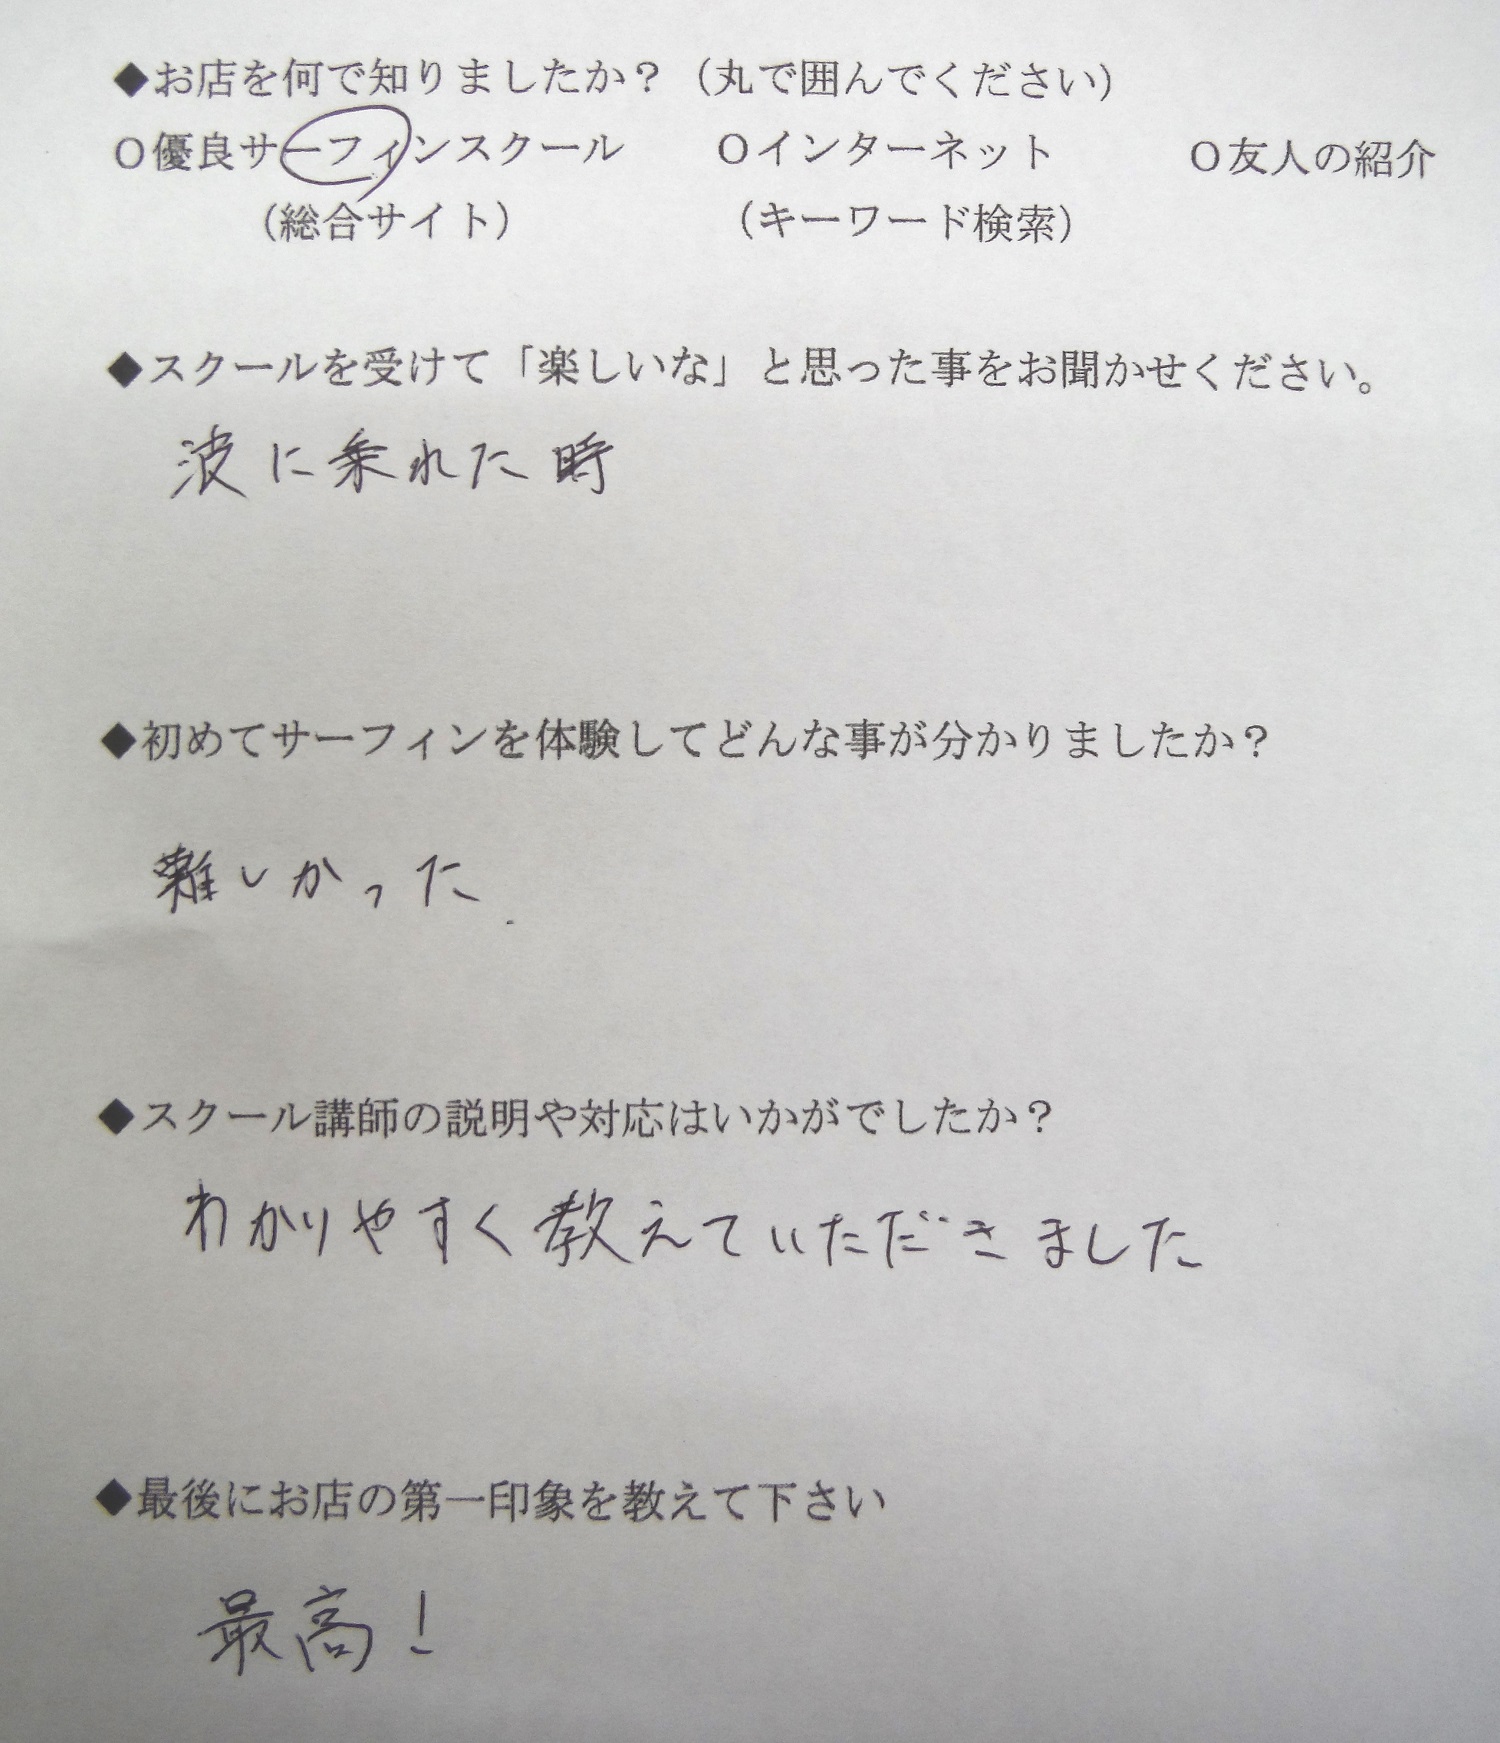 ◆お店を何で知りましたか？（丸で囲んでください）
○優良サーフィンスクール ○インターネット ○友人の紹介
（総合サイト） （キーワード検索）
◆スクールを受けて「楽しいな」と思った事をお聞かせください。
波に乗れた時
◆初めてサーフィンを体験してどんな事が分かりましたか？
難しかった.
◆スクール講師の説明や対応はいかがでしたか？
わかりやすく教えていただきました
◆最後にお店の第一印象を教えて下さい
最高！